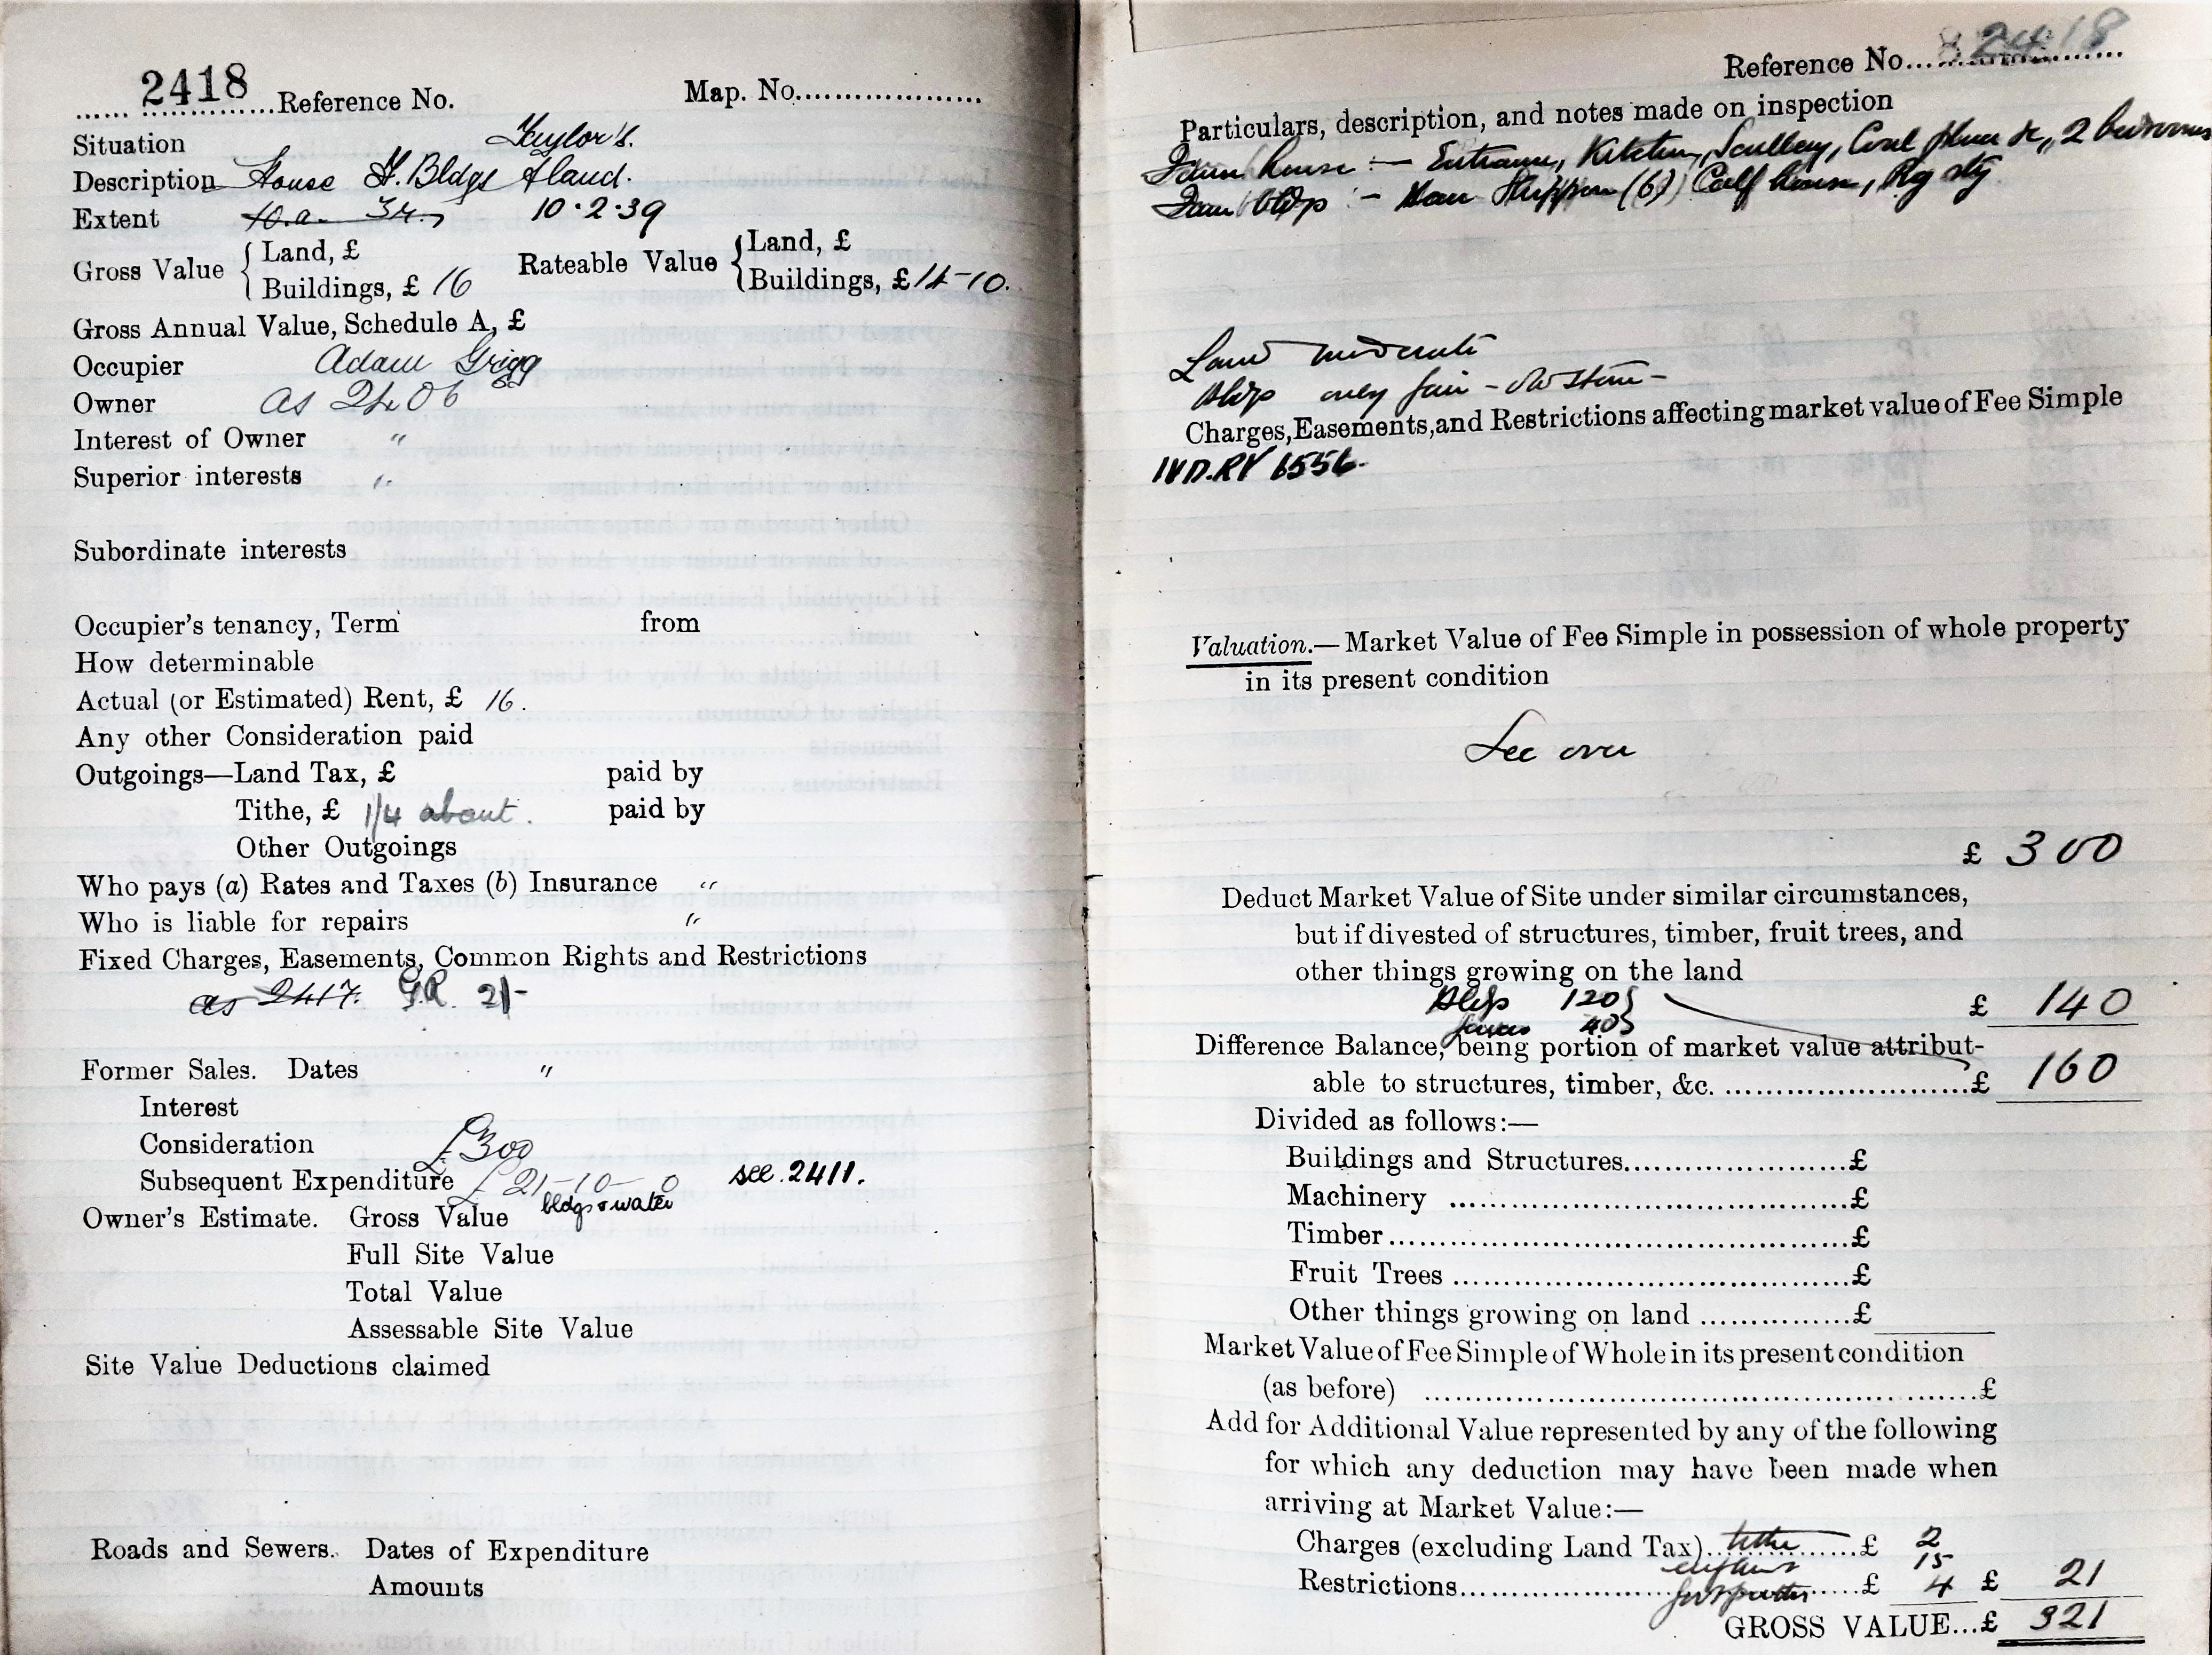 2418 Reference No. Map. No.
Situation Taylor's.
Description House F. Bldgs & land.
Extent 10.a. 3r. 10.2.39
Gross Value { Land, £ Rateable Value { Land, £
Buildings, £ 16 Buildings, £ 14-10.
Gross Annual Value, Schedule A, £
Occupier Adam Grigg
Owner as 2406
Interest of Owner "
Superior interests "
Subordinate interests
Occupier's tenancy, Term from
How determinable
Actual (or Estimated) Rent, £ 16.
Any other Consideration paid
Outgoings—Land Tax, £ paid by
Tithe, £ 1/4 about. paid by
Other Outgoings
Who pays (a) Rates and Taxes (b) Insurance "
Who is liable for repairs "
Fixed Charges, Easements, Common Rights and Restrictions
as 2417. G.R. 2/-
Former Sales. Dates "
Interest
Consideration £300
Subsequent Expenditure £21-10-0 see.2411.
bldgs & water
Owner's Estimate. Gross Value
Full Site Value
Total Value
Assessable Site Value
Site Value Deductions claimed
Roads and Sewers. Dates of Expenditure
Amounts
Reference No. 2418
Particulars, description, and notes made on inspection
Farm house :— Entrance, Kitchen, Scullery, Coal place &c,, 2 bedrooms
Farm bldgs :— Shippon (6) Calf house, Pig sty
Land moderate
Bldgs only fair - old stone -
Charges, Easements, and Restrictions affecting market value of Fee Simple
IVD.RY 6556.
Valuation.—Market Value of Fee Simple in possession of whole property
in its present condition
See over
£ 300
Deduct Market Value of Site under similar circumstances,
but if divested of structures, timber, fruit trees, and
other things growing on the land
Bldgs 120 } £ 140
40 }
Difference Balance, being portion of market value attribut-
able to structures, timber, &c. £ 160
Divided as follows:—
Buildings and Structures £
Machinery £
Timber £
Fruit Trees £
Other things growing on land £
Market Value of Fee Simple of Whole in its present condition
(as before) £
Add for Additional Value represented by any of the following
for which any deduction may have been made when
arriving at Market Value:—
Charges (excluding Land Tax) tithe £ 2
15
Restrictions £ 4 £ 21
GROSS VALUE...£ 321